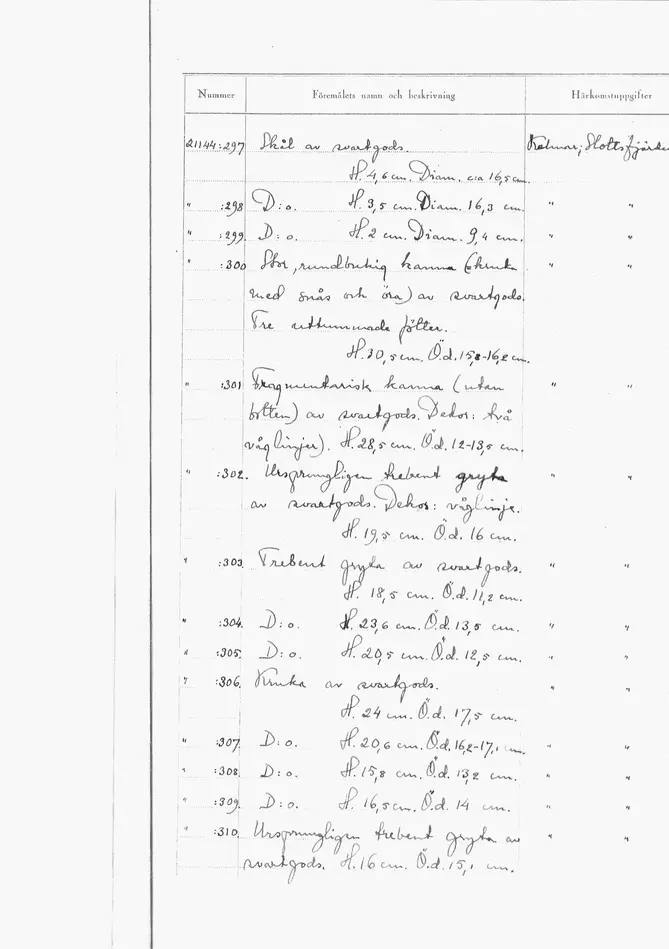 Nummer Föremålets namn och beskrivning Härkomstuppgifter
21144:297 Skål av svartgods. Kalmar, Slottsfjärden
H. 4,6 cm. Diam. c:a 16,5 cm.
" :298 D:o. H. 3,5 cm. Diam. 16,3 cm. " "
" :299. D:o. H. 2 cm. Diam. 9,4 cm. " "
" :300 Stor, rundbukig kanna (kruka " "
med snås och öra) av svartgods.
Tre uttummade fötter.
H. 30,5 cm. Ö.d. 15,8-16,2 cm.
" :301 Fragmentarisk kanna (utan " "
botten) av svartgods. Dekor: två
våglinjer). H. 28,5 cm. Ö.d. 12-13,5 cm.
" :302. Ursprungligen trebent gryta " "
av svartgods. Dekor: våglinje.
H. 19,5 cm. Ö.d. 16 cm.
" :303. Trebent gryta av svartgods. " "
H. 18,5 cm. Ö.d. 11,2 cm.
" :304. D:o. H. 23,6 cm. Ö.d. 13,5 cm. " "
" :305. D:o. H. 20,5 cm. Ö.d. 12,5 cm. " "
" :306. Kruka av svartgods. " "
H. 24 cm. Ö.d. 17,5 cm.
" :307. D:o. H. 20,6 cm. Ö.d. 16,2-17,1 cm. " "
" :308. D:o. H. 15,8 cm. Ö.d. 13,2 cm. " "
" :309. D:o. H. 16,5 cm. Ö.d. 14 cm. " "
" :310. Ursprungligen trebent gryta av " "
svartgods. H. 16 cm. Ö.d. 15,1 cm.